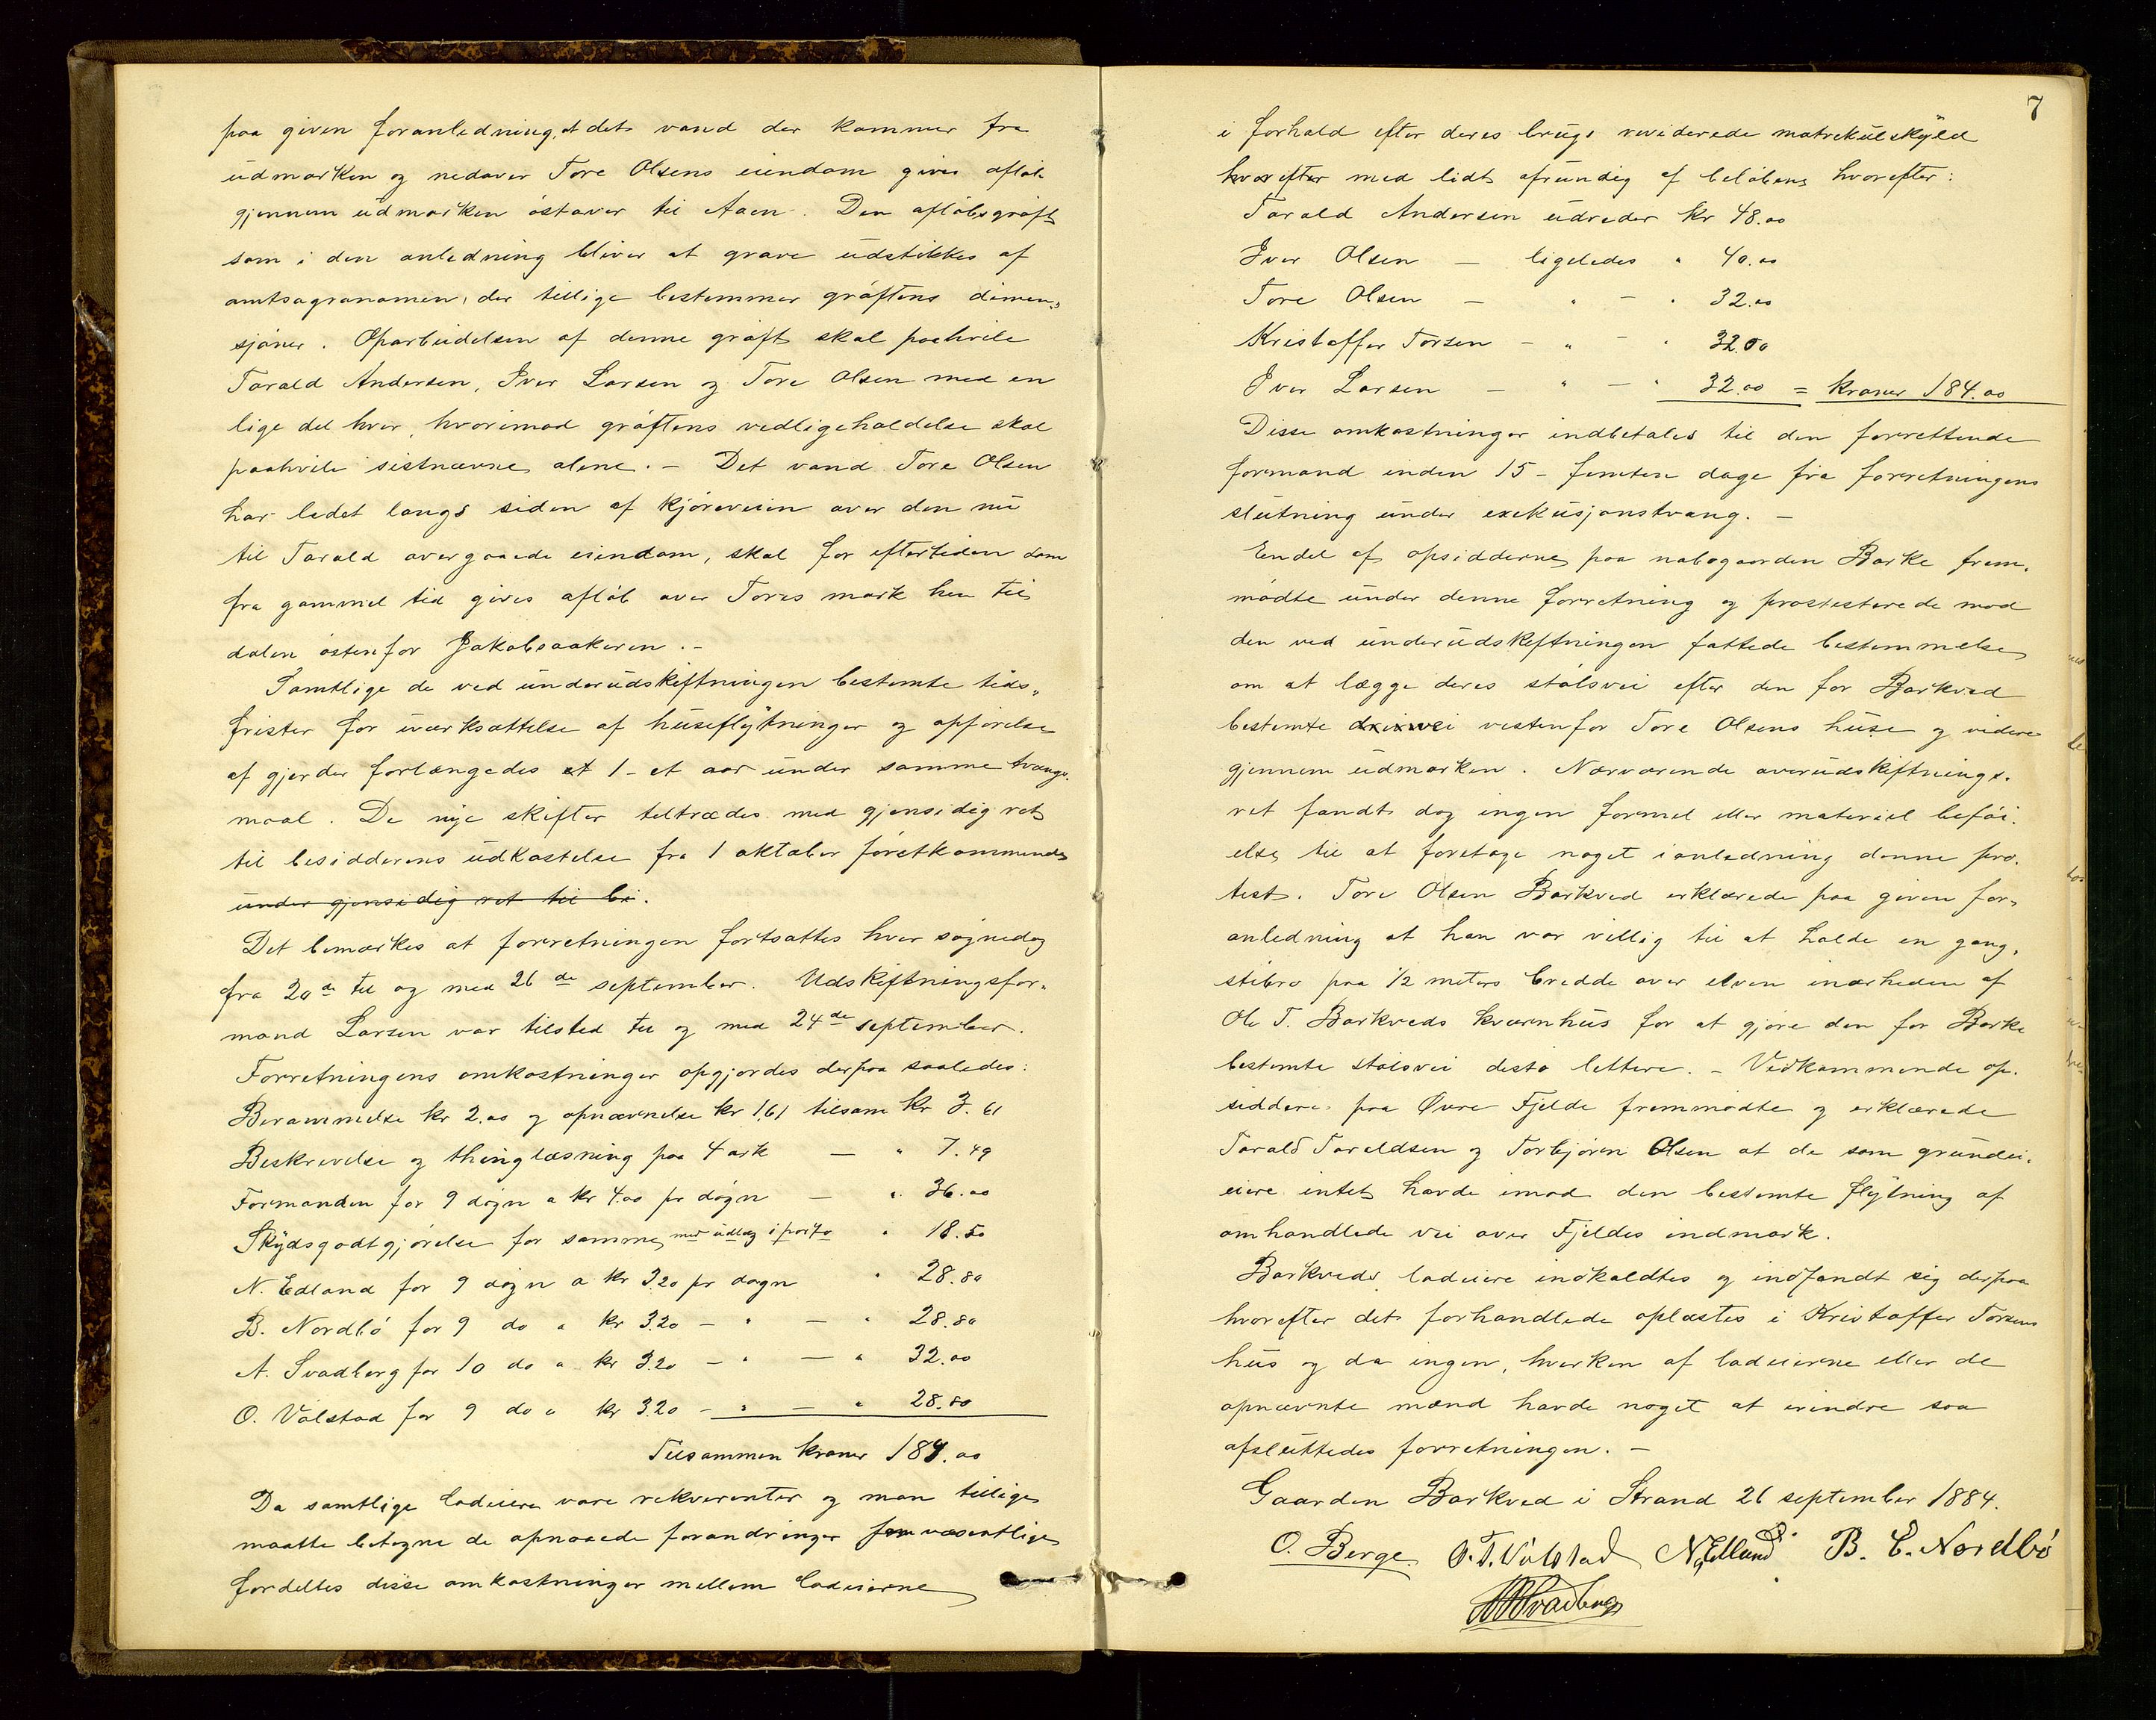 paa given foranledning, at det vand der kommer fra
udmarken og nedover Tore Olsens eiendom gives afløb
gjennem udmarken østover til Aaen. Den afløbsgrøft
som i den anledning bliver at grave udstikkes af
amtsagronomen, der tillige bestemmer grøftens dimen-
sjoner. Oparbeidelsen af denne grøft skal paahvile
Tarald Andersen, Iver Larsen og Tore Olsen med en
lige del hver, hvorimod grøftens vedligeholdelse skal
paahvile sistnævne alene. – Det vand Tore Olsen
har ledet langs siden af kjøreveien over den nu
til Tarald overgaaede eiendom, skal for eftertiden som
fra gammel tid gives afløb over Tores mark hen til
dalen østenfor Jakobsaakeren. –
Samtlige de ved underudskiftningen bestemte tids-
frister for iværksættelse af huseflytninger og opførelse
af gjerder forlængedes et 1 - et aar under samme tvangs-
maal. De nye skifter tiltrædes med gjensidig ret
til besidderens udkastelse fra 1 oktober førstkommende
under gjensidig ret til be.
Det bemærkes at forretningen fortsattes hver søgnedag
fra 20de til og med 26de september. Udskiftningsfor-
mand Larsen var tilsted til og med 24de september.
Forretningens omkostninger opgjordes derpaa saaledes:
Berammelse kr 2.00 og opnævnelse kr 1.61 tilsam kr 3.61
Beskrivelse og thinglæsning paa 4 ark — " 7.49
Formanden for 9 døgn a kr 4.00 pr døgn — " 36.00
Skydsgodtgjørelse for samme med udlæg i porto " 18.50
N. Edland for 9 døgn a kr 3.20 pr døgn " 28.80
B. Nordbø for 9 do a kr 3.20 – " — " 28.80
A. Svadberg for 10 do a kr 3.20 – " — " 32.00
O. Vølstad for 9 do a kr 3.20 – " — " 28.80
Tilsammen kroner 184.00
Da samtlige lodeiere vare rekverenter og man tillige
maatte betegne de opnaaede forandringer som væsentlige
fordeltes disse omkostninger mellem lodeierne
7
i forhold efter deres brugs reviderede matrikulskyld
hvorefter med lidt afrundig af beløbene hvorefter:
Tarald Andersen udreder kr 48.00
Iver Olsen — ligeledes " 40.00
Tore Olsen — " — " 32.00
Kristoffer Torsen – " – " 32.00
Iver Larsen — " — " 32.00 = kroner 184.00
Disse omkostninger indbetales til den forrettende
formand inden 15 - femten dage fra forretningens
slutning under exekusjonstvang. –
Endel af opsidderne paa nabogaarden Barke frem-
mødte under denne forretning og prostesterede mod
den ved underudskiftningen fattede bestemmelse
om at lægge deres stølsvei efter den for Barkved
bestemte driwei vestenfor Tore Olsens huse og videre
gjennem udmarken. Nærværende overudskiftnings-
ret fandt dog ingen formel eller materiel beføi-
else til at foretage noget i anledning denne pro-
test. Tore Olsen Barkved erklærede paa given for-
anledning at han var villig til at holde en gang-
stibro paa 1/2 meters bredde over elven i nærheden af
Ole T. Barkveds kværnhus for at gjøre den for Barke
bestemte stølsvei desto lettere. – Vedkommende op-
siddere paa Øvre Fjelde fremmødte og erklærede
Tarald Taraldsen og Torbjørn Olsen at de som grundei-
eiere intet havde imod den bestemte flytning af
omhandlede vei over Fjeldes indmark.
Barkveds lodeiere indkaldtes og indfandt sig derpaa
hvorefter det forhandlede oplæstes i Kristoffer Torsens
hus og da ingen, hverken af lodeierne eller de
opnævnte mænd havde noget at erindre saa
afsluttedes forretningen. –
Gaarden Barkved i Strand 26 september 1884.
O. Berge. O. T. Vølstad N. Edland B. E. Nordbø
Svadberg